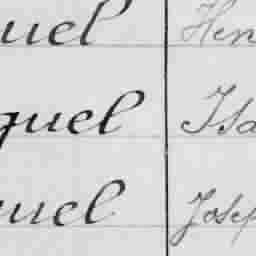 uel Hen
quel Isa
uel Josep